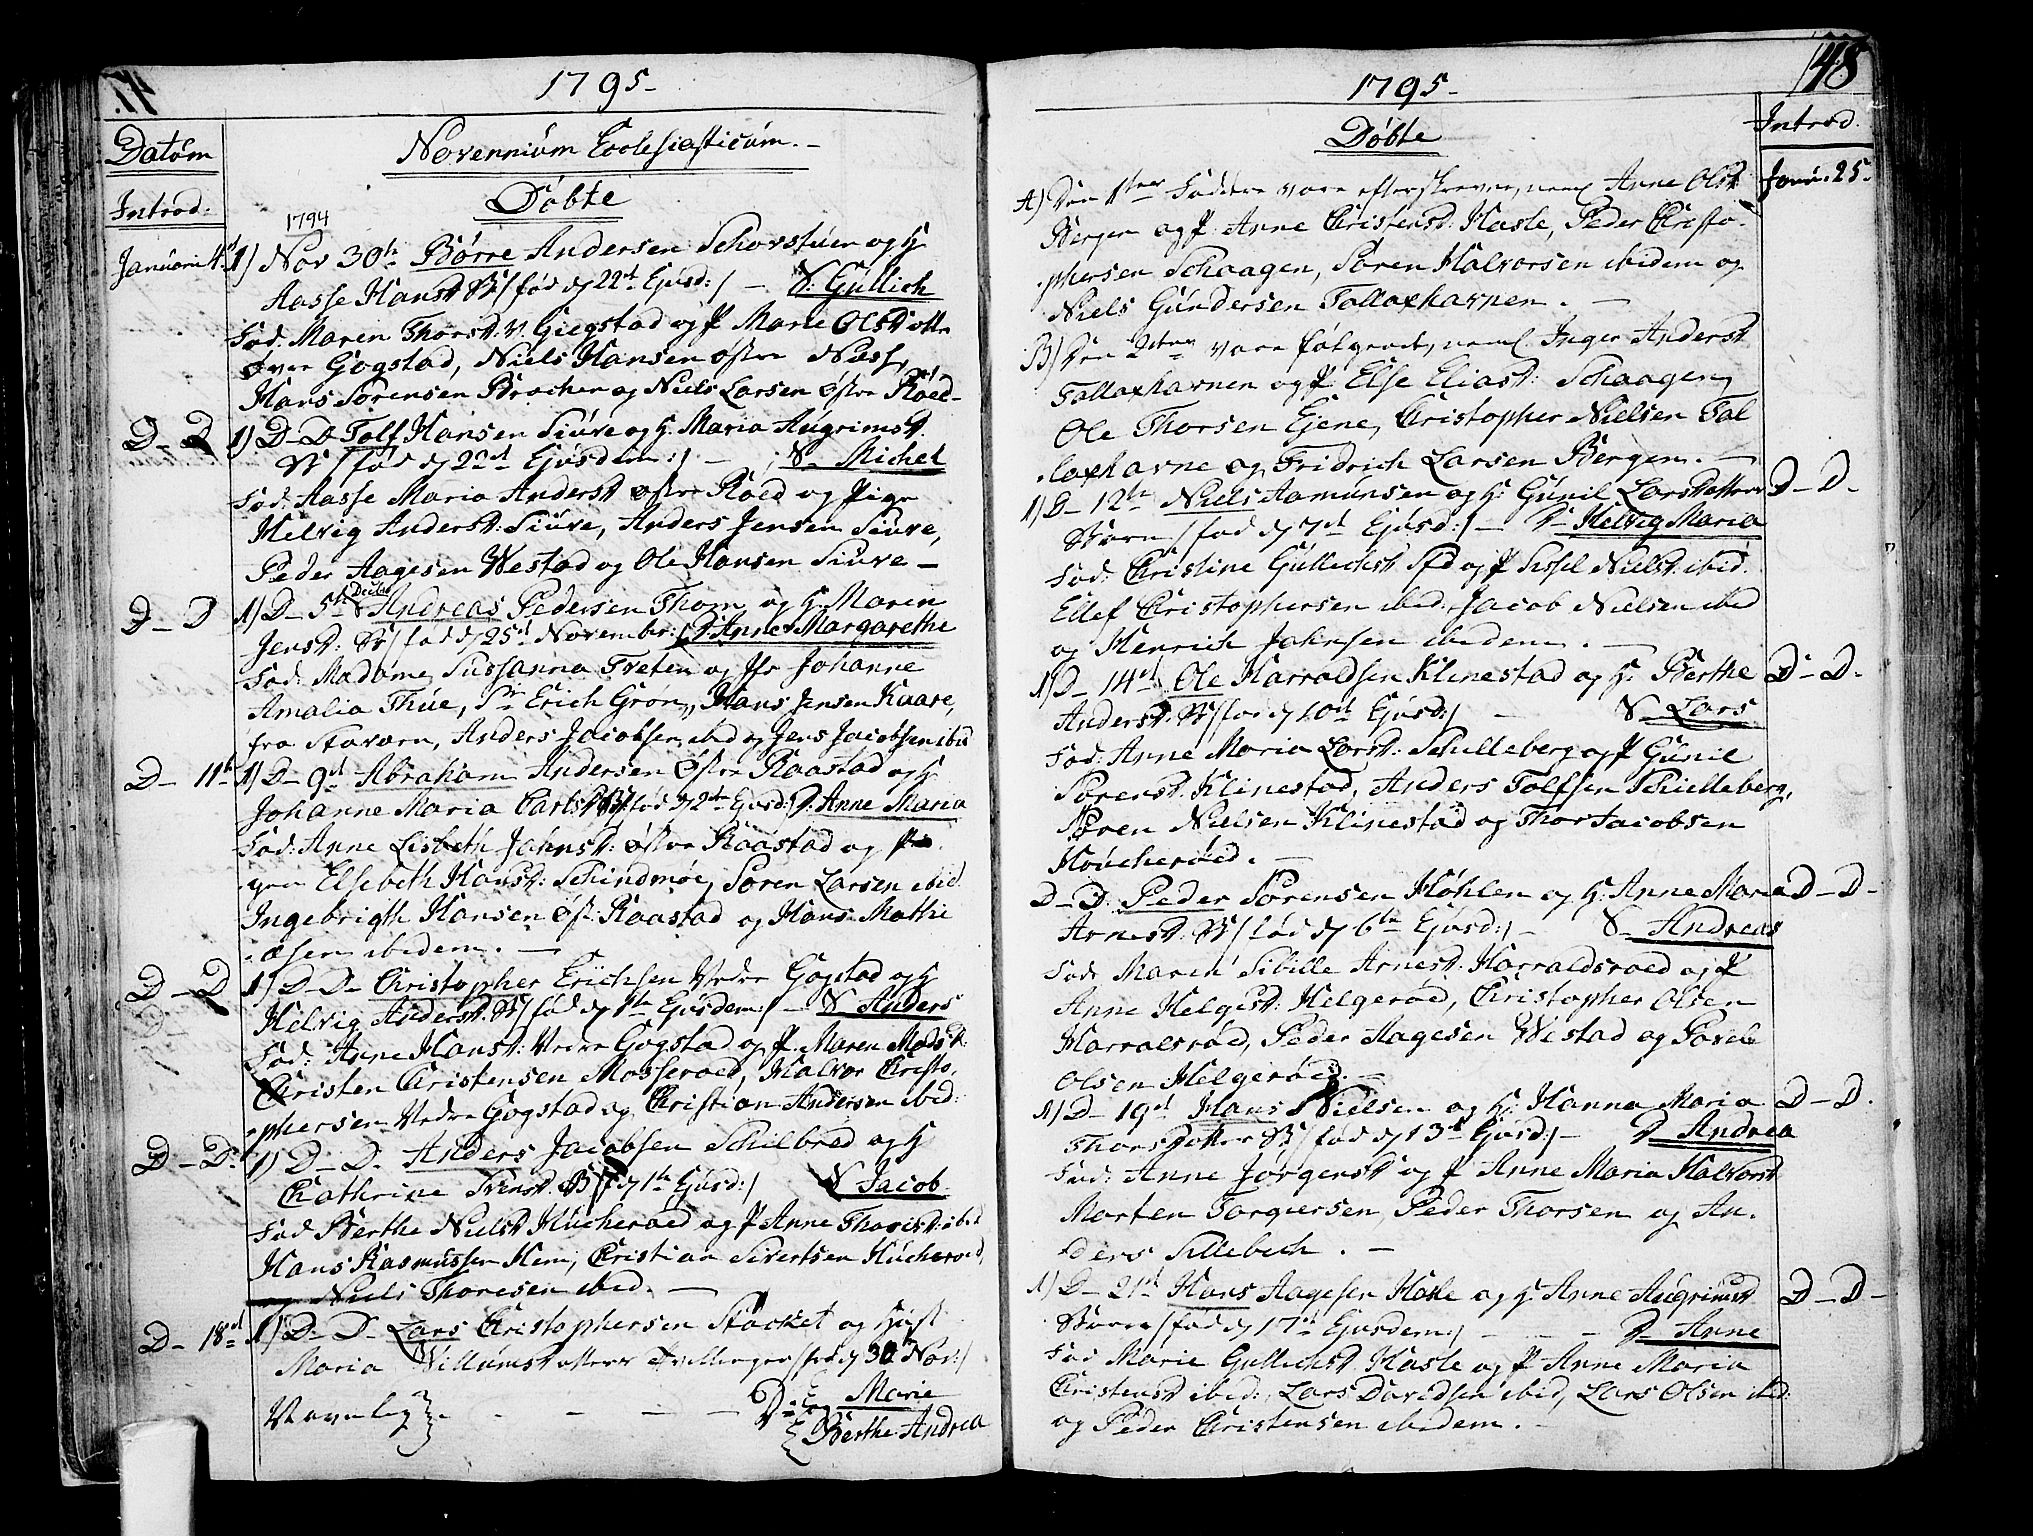 47.
1795.
Datum
Novennium Ecclesiasticum.
Introd:
Døbte
1794
Januarii 4d 1) Nov 30te Børre Andersen Schovstuen og H
Aasse Hansd. B/ fød d 22d Ejusd:/ — S: Gullich
Fad: Maren Thorsd. v. Giegstad og P Marie Olsdotter
øvre Gogstad, Niels Hansen østre Næss,
Hans Sørensen Bracher og Niels Larsen østre Røed.
D — D 1) D — D Tolf Hansen Siure og H. Maria Augrimsd.
B/ fød d 20d Ejusdem:/ — S — Michel
Fad: Aasse Maria Andersd. østre Roed og Pige
Helvig Andersd: Siure, Anders Jensen Siure,
Peder Aagesen Westad og Ole Hansen Siure —
D — D 1) D — 5te Andreas Pedersen Thom og H. Maren
Jensd: B/ fød d 25d November:/ D. Anne Margarethe
Fad: Madame Sussanna Treten og Jfr Johanne
Amalia Thue, Sr Erich Grøn, Hans Jensen Kaare,
fra Staværn, Anders Jacobsen ibid og Jens Jacobsen ibid
D — 11te 1) D — 9d Abraham Andersen østre Raastad og H
Johanne Maria Carlsd. B/ fød d 2de Ejusd:/ D. Anne Maria
Fad: Anne Lisbeth Jahnsd: østre Raastad og Pi
gen Elsebeth Hansd: Schindmøe, Søren Larsen ibid
Ingebrigth Hansen øst: Raastad og Hans Mathi
æsen ibidem. —
D — D 1) D — D — Christopher Erichsen Nedre Gogstad og H
Helvig Andersd. B/ fød d 1te Ejusdem:/ — S Anders
Fad: Anne Hansd: Nedre Gogstad og P. Maren Madsd:
Christen Christensen Mosseroed, Halvor Christo,
phersen Nedre Gogstad og Christian Andersen ibid:
D — D. 1) D — D. Anders Jacobsen Schilbred og H
Cathrine Svensd. B/ f d 1te Ejusd:/ S Jacob.
Fad Berthe Nielsd. Hucheroed og P Anne Thorisd: ibid
Hans Rasmussen Hem, Christian Sivertsen Hucheroed,
og Niels Thoresen ibid. —
D — 18d 1) D — D — Lars Christophersen Stocket og Hust
Maria Willumsdotter Tvillinger/ fød d 30 Nov:/
Navnlig — — — D: Marie
og Berthe Andrea
48
1795.
Døbte
Introd.
A) Den 1ster Faddere vare efterskrevne, neml Anne Olsd Janu. 25.
Bergen og P. Anne Christensd. Hasle, Peder Christo-
phersen Schaagen, Søren Halvorsen ibidem og
Niels Gundersen Tallaxhavnen. —
B) Den 2den vare følgende, neml. Inger Andersd
Tallaxhavnen og P. Else Eliasd: Schaagen,
Ole Thorsen Eјene, Christopher Nielsen Tal
laxhavne og Fridrich Larsen Bergen. —
1) D — 12te Niels Aamunsen og H: Gunil Larsdatter D — D —
Barn/ fød d 7d Ejusd:/ — D — Helvig Maria
Fad: Christine Gullichsd. Sted og P Sissel Nielsd. ibid.
Ellef Christophersen ibid. Jacob Nielsen ibid
og Henrich Jahnsen ibidem. —
1) D — 14d Ole Harraldsen Klinestad og H. Berthe D — D —
Andersd. B/ fød d 10d Ejusd:/ — S Lars
Fad: Anne Maria Larsd: Schulleberg og P Gunil
Sørensd. Klinestad, Anders Tolfsen Schielleberg,
Søren Nielsen Klinestad og Thor Jacobsen
Houcherøed. —
D — D. Peder Sørensen Høhlen og H. Anne Maria D — D —
Arnesd: B/ fød d 6te Ejusd:/ — S — Andreas
Fad: Maren Sibille Arnesd. Harraldsroed og P
Anne Helgesd: Helgerøed, Christopher Olsen
Harralsrød, Peder Aagesen Westad og Povel
Olsen Helgerøed. —
1) D — 19d Hans Nielsen og H: Hanna Maria D — D.
Thorsdotter B/ fød d 13d Ejusd:/ — D Andrea
Fad: Anne Jørgensd og P Anne Maria Halvorsd
Morten Torgiersen, Peder Thorsen og An.
ders Sillebech. —
1) D — 21d Hans Aagesen Hasle og H. Anne Augrimsd D — D —
Barn/ fød d 17de Ejusdem:/ — — D — Anne
Fad Marie Gullichsd. Hasle og P Anne Maria
Christensd ibid:, Lars Davidsen ibid, Lars Olsen ibid:
og Peder Christensen ibidem. —